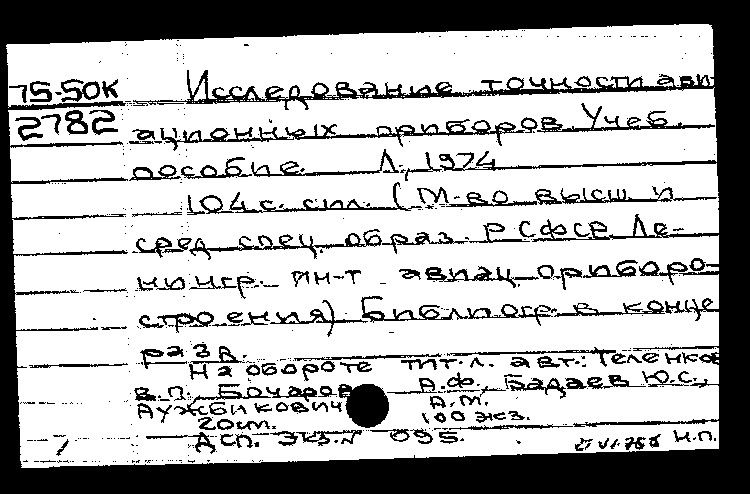 75-50К
2782
Исследование точности ави-
ационных приборов. Учеб.
пособие. Л., 1974
104 с. с ил. (М-во высш и
сред спец. образ. РСФСР. Ле-
нингр. ин-т авиац. приборо-
строения). Библиогр. в конце
разд.
На обороте тит. л. авт.: Теленков
В.П., Бочаров А.Ф., Бадаев Ю.С.,
Аужбикович А.М.
20см. 100 экз.
Дсп. Экз. № 095.
Н.П.